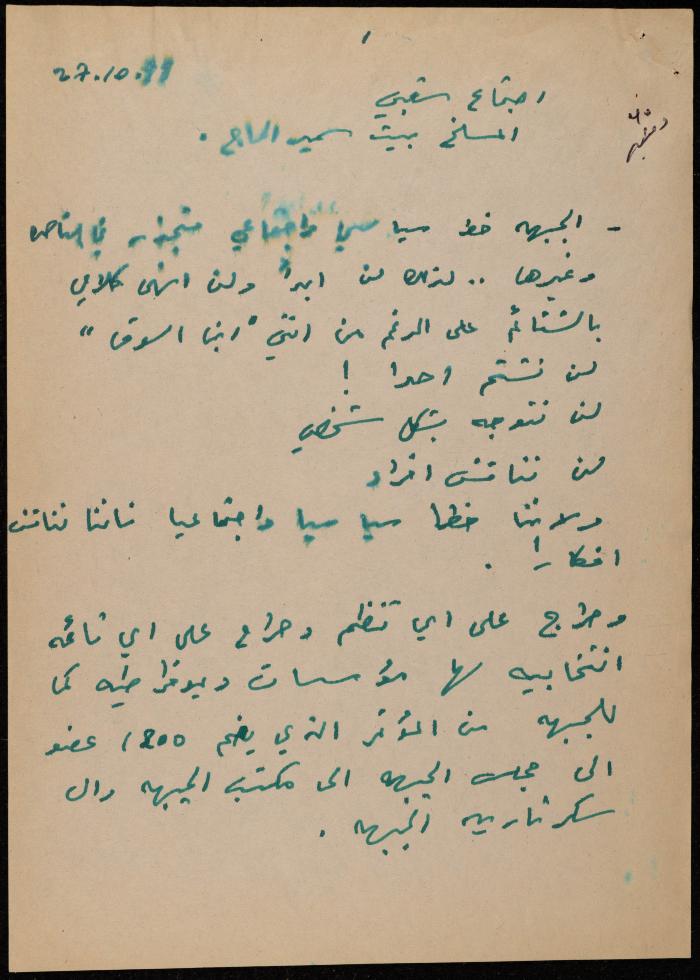 27.10.
اجتماع شعبي
المسلخ بيت سمير الحاج .
- الجبهه خط سياسي واجتماعي متجذر في الناصره
وغيرها .. لذلك لن ابدأ ولن انهي كلامي
بالشتائم على الرغم من انني "ابن السوق"
لن نشتم احدا !
لن نتوجه بشكل شخصي
لن نناقش افراد
ولاننا خطا سياسيا واجتماعيا فاننا نناقش
افكارا .
وحراج على اي تنظيم وحراج على اي قائمه
انتخابيه لها مؤسسات ديموقراطيه كما
للجبهه من المؤتمر الذي يضم 1200 عضو
الى مجلس الجبهه الى مكتب الجبهه وال
سكرتارييه الجبهه .